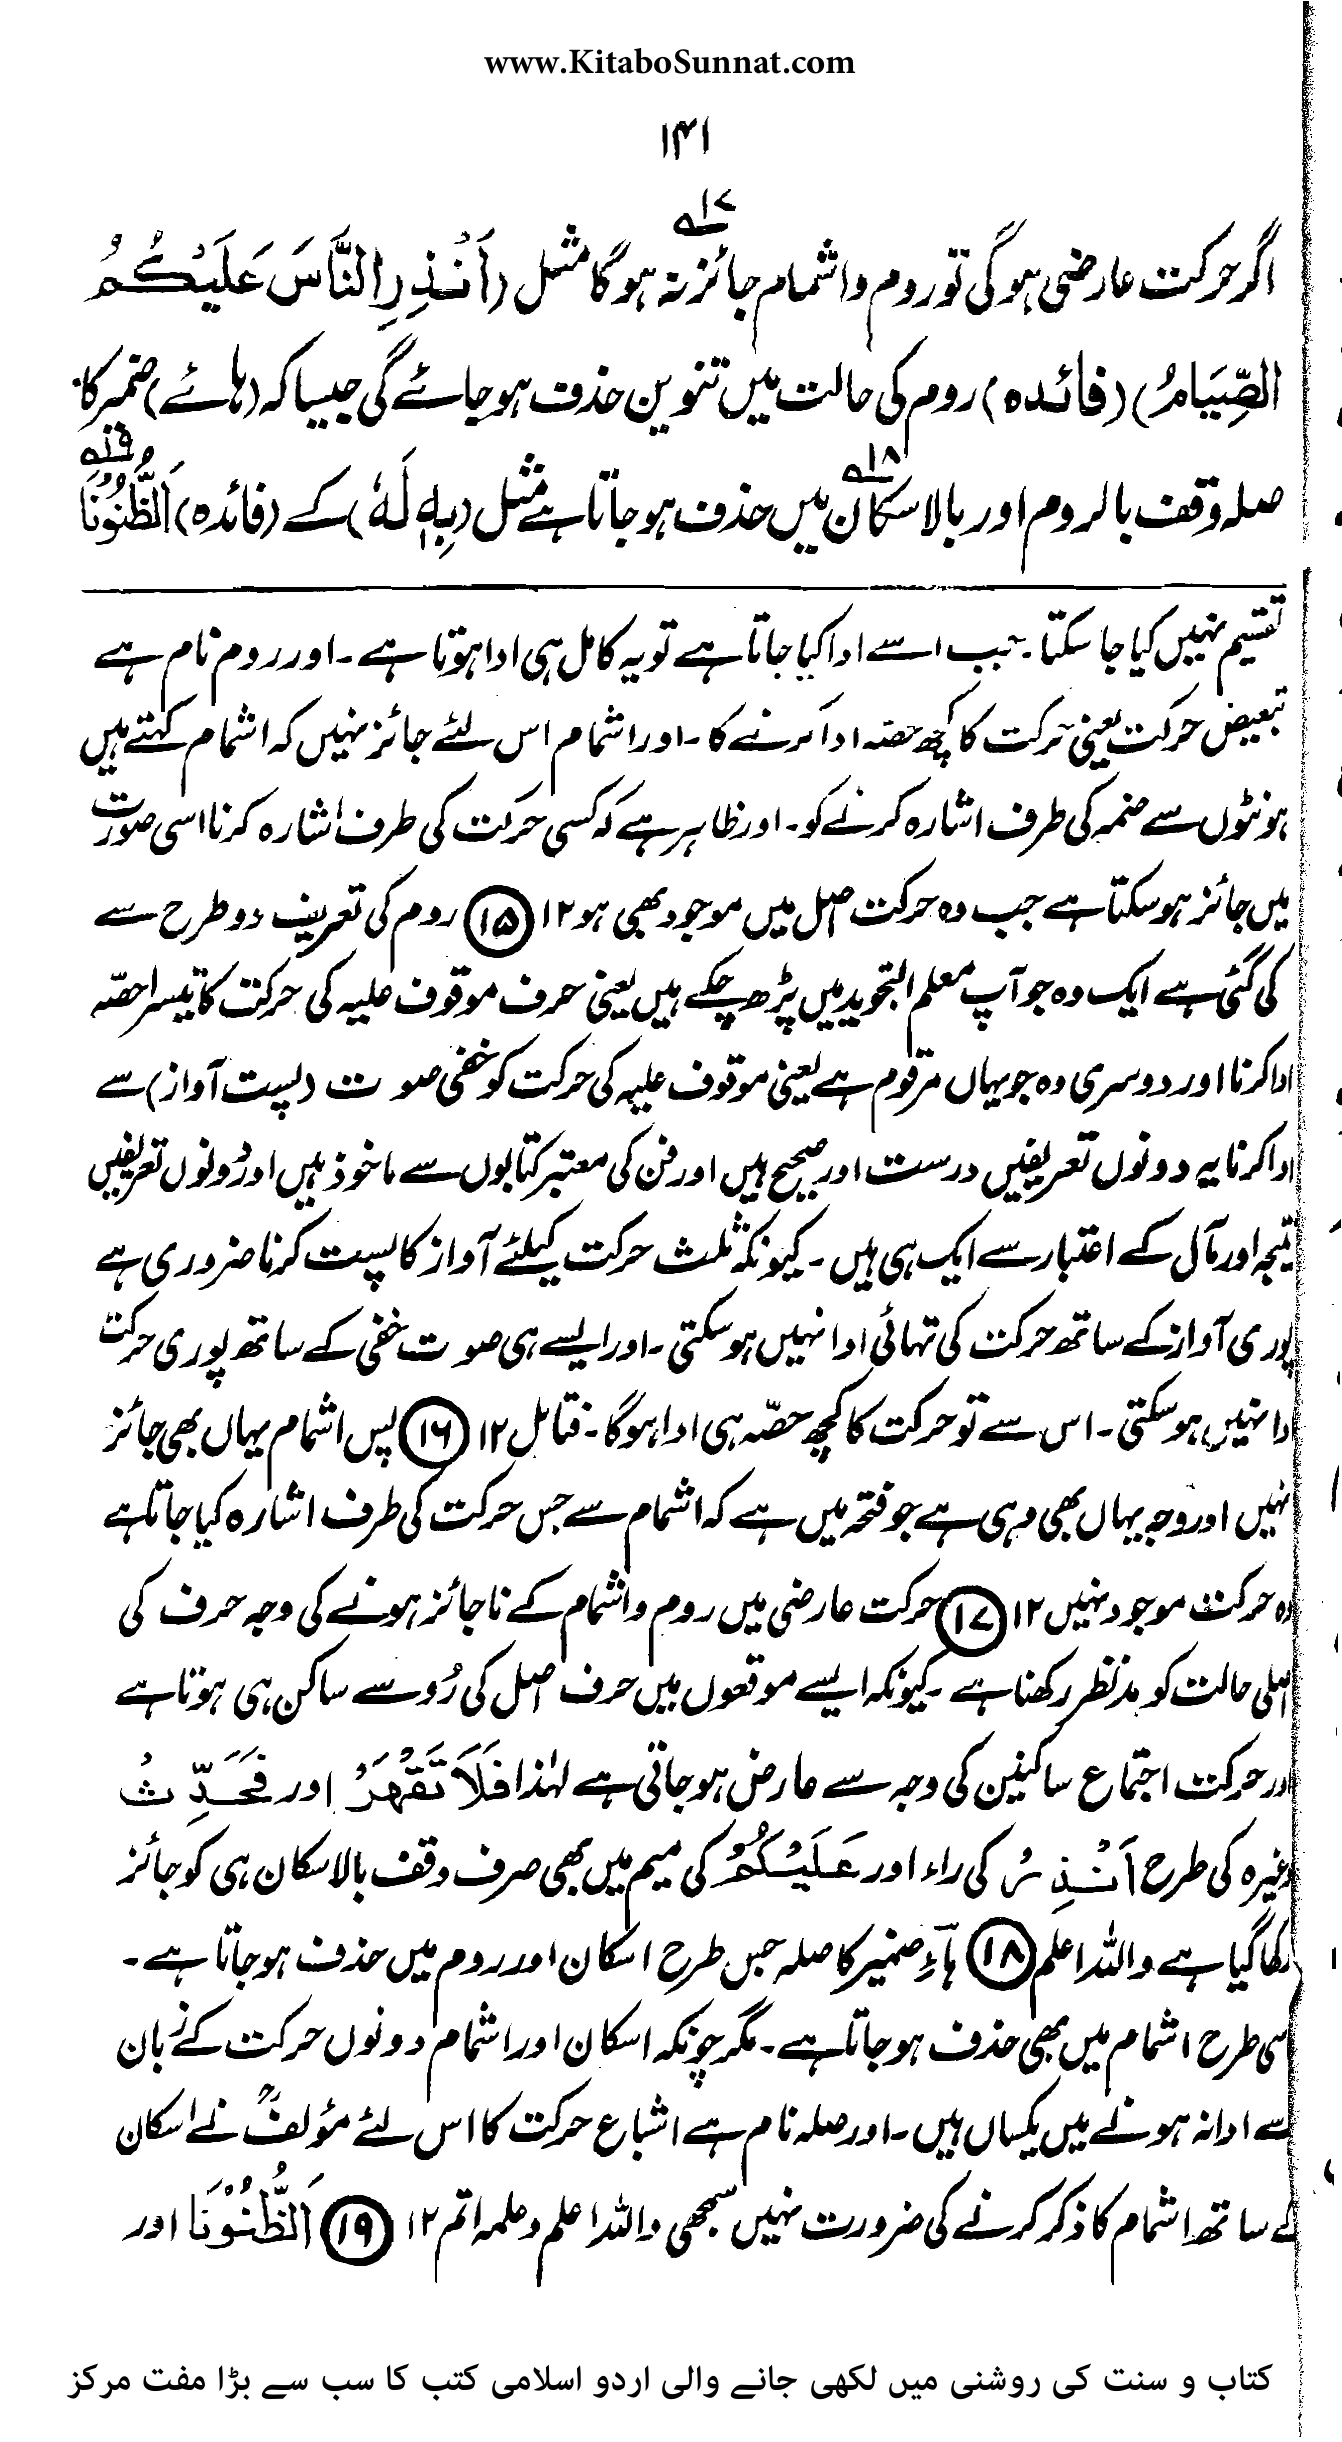 www.KitaboSunnat.com
۱۴۱
اگر حرکت عارضی ہوگی تو روم و اشمام جائز نہ ہوگا ۱۷؎ مثل (اَنْذِرِ النَّاسَ عَلَيْكُمُ
الصِّيَامُ) (فائدہ) روم کی حالت میں تنوین حذف ہوجائے گی جیسا کہ (ہائے) ضمیر کا
صلہ وقف بالروم اور بالاسکان ۱۸؎ میں حذف ہوجاتا ہے مثل (بِهٖ لَهٗ) کے (فائدہ) اَلظُّنُوْنَا ۱۹؎
تقسیم نہیں کیا جا سکتا۔ جب اسے ادا کیا جاتا ہے تو یہ کامل ہی ادا ہوتا ہے۔ اور روم نام ہے
تبعیض حرکت یعنی حرکت کا کچھ حصّہ ادا کرنے کا۔ اور اشمام اس لئے جائز نہیں کہ اشمام کہتے ہیں
ہونٹوں سے ضمہ کی طرف اشارہ کرنے کو۔ اور ظاہر ہے کہ کسی حرکت کی طرف اشارہ کرنا اسی صورت
میں جائز ہو سکتا ہے جب وہ حرکت اصل میں موجود بھی ہو ۱۲ (۱۵) روم کی تعریف دو طرح سے
کی گئی ہے ایک وہ جو آپ معلم التجوید میں پڑھ چکے ہیں یعنی حرف موقوف علیہ کی حرکت کا تیسرا حصّہ
ادا کرنا اور دوسری وہ جو یہاں مرقوم ہے یعنی موقوف علیہ کی حرکت کو خفی صوت (پست آواز) سے
ادا کرنا یہ دونوں تعریفیں درست اور صحیح ہیں اور فن کی معتبر کتابوں سے ماخوذ ہیں اور دونوں تعریفیں
نتیجہ اور مآل کے اعتبار سے ایک ہی ہیں۔ کیونکہ ثلث حرکت کیلئے آواز کا پست کرنا ضروری ہے
پوری آواز کے ساتھ حرکت کی تہائی ادا نہیں ہوسکتی۔ اور ایسے ہی صوت خفی کے ساتھ پوری حرکت
ادا نہیں ہوسکتی۔ اس سے تو حرکت کا کچھ حصّہ ہی ادا ہوگا۔ فتامل ۱۲ (۱۶) پس اشمام یہاں بھی جائز
نہیں اور وجہ یہاں بھی وہی ہے جو فتحہ میں ہے کہ اشمام سے جس حرکت کی طرف اشارہ کیا جاتا ہے
وہ حرکت موجود نہیں ۱۲ (۱۷) حرکت عارضی میں روم و اشمام کے ناجائز ہونے کی وجہ حرف کی
اصلی حالت کو مدنظر رکھنا ہے۔ کیونکہ ایسے موقعوں میں حرف اصل کی رُو سے ساکن ہی ہوتا ہے
اور حرکت اجتماع ساکنین کی وجہ سے عارض ہوجاتی ہے لہٰذا فَلَا تَقْهَرْ اور فَحَدِّثْ
وغیرہ کی طرح اَنْذِرْ کی راء اور عَلَيْكُمْ کی میم میں بھی صرف وقف بالاسکان ہی کو جائز
رکھا گیا ہے واللہ اعلم (۱۸) ہآءِ ضمیر کا صلہ جس طرح اسکان اور روم میں حذف ہوجاتا ہے۔
اسی طرح اشمام میں بھی حذف ہوجاتا ہے۔ مگر چونکہ اسکان اور اشمام دونوں حرکت کے زبان
سے ادا نہ ہونے میں یکساں ہیں۔ اور صلہ نام ہے اشباع حرکت کا اس لئے مؤلفؒ نے اسکان
کے ساتھ اشمام کا ذکر کرنے کی ضرورت نہیں سمجھی واللہ اعلم وعلمہ اتم ۱۲ (۱۹) اَلظُّنُوْنَا اور
کتاب و سنت کی روشنی میں لکھی جانے والی اردو اسلامی کتب کا سب سے بڑا مفت مرکز